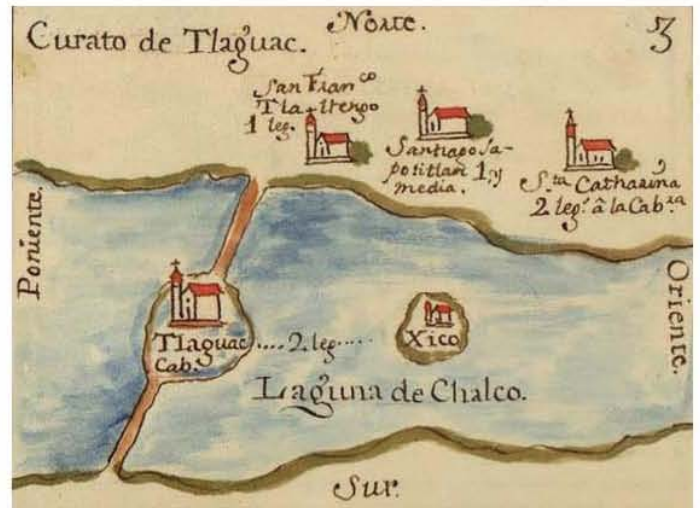 Norte.
Curato de Tlaguac.
3
San Fran.co
Tlaltengo
1 leg.
Santiago Sa-
potitlan 1, y
media.
S.ta Catharina
2 leg.s â la Cab.ra
Poniente.
Oriente.
Tlaguac
Cab.a
....2 leg.....
Xico
Laguna de Chalco.
Sur.